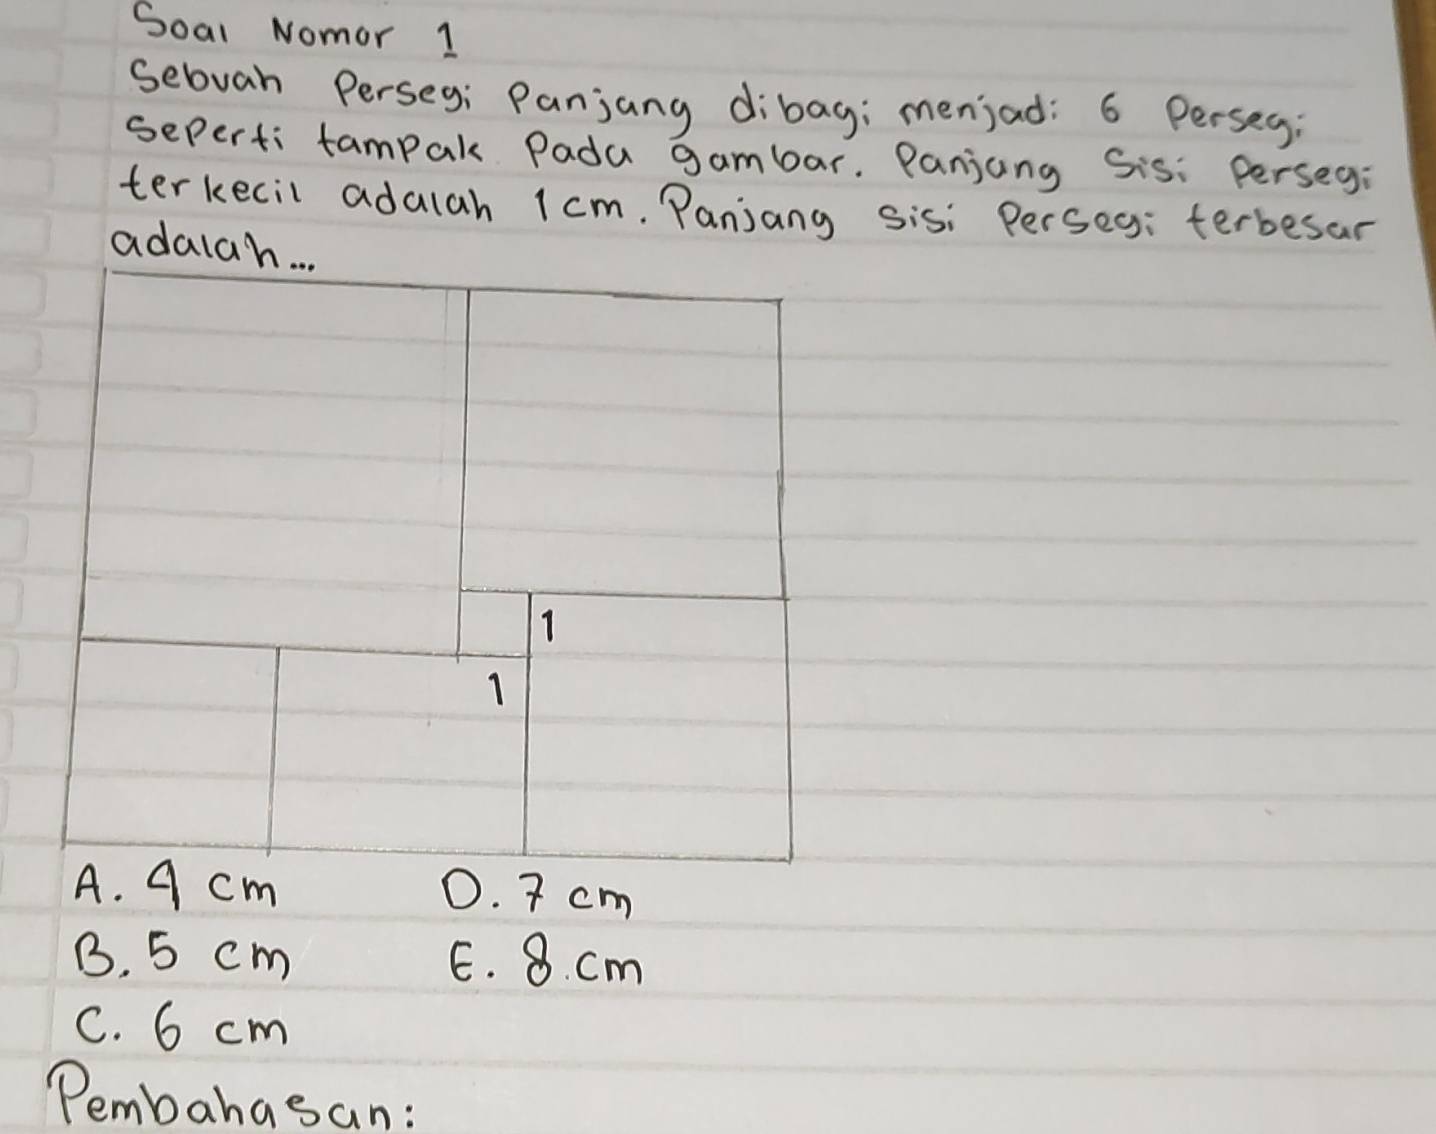 Soal Nomor 1
Sebuah Persegi Panjang dibagi menjadi 6 Persegi
seperti tampak Pada gambar. Panjang Sisi Persegi
terkecil adalah 1 cm. Panjang sisi Persegi terbesar
adalah...
1
1
A. 4 cm D. 7 cm
B. 5 cm E. 8 cm
C. 6 cm
Pembahasan: